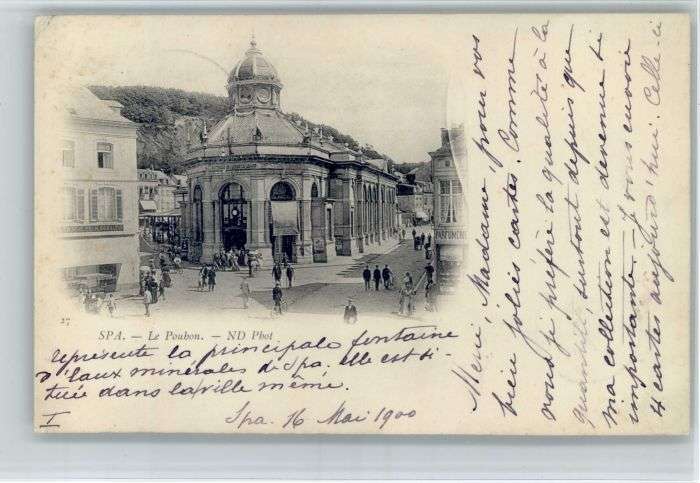 PARFUMERIE
27
SPA. — Le Pouhon. — ND Phot
représente la principale fontaine
d'eaux minérales de Spa, elle est si-
tuée dans la ville même.
Spa, 16 Mai 1900
I
Merci, Madame, pour vos
bien jolies cartes. Comme
vous je préfère la qualité à la
quantité surtout depuis que
ma collection est devenue si
importante. — Je vous envoie
4 cartes aujourd'hui. Celle-ci